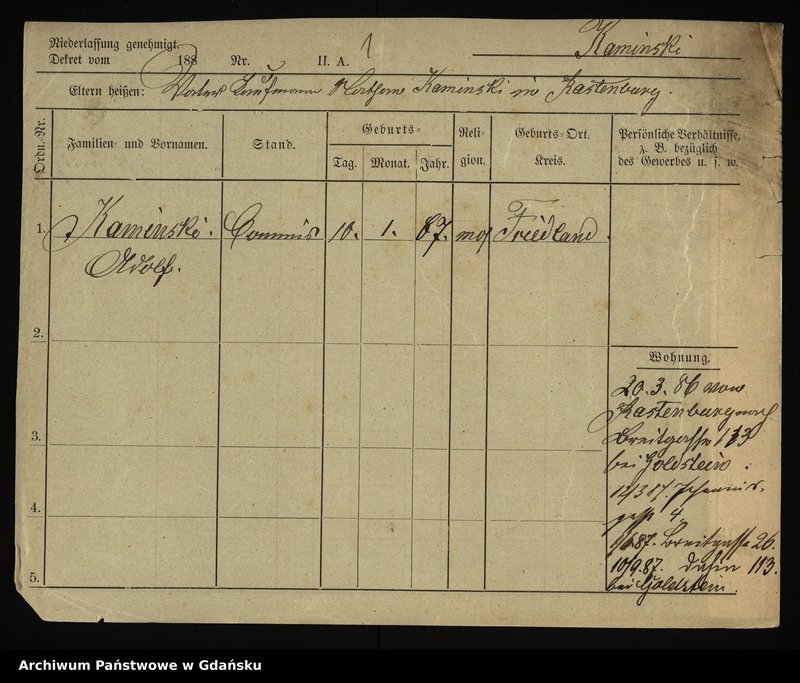 Kaminski
Niederlassung genehmigt.
Dekret vom 188 Nr. II. A. 1
Eltern heißen: Vater Kaufmann Kaminski in Rastenburg.
Ordn.-Nr. Familien- und Vornamen. Stand. Geburts- Tag. Monat. Jahr. Religion. Geburts-Ort. Kreis. Persönliche Verhältnisse, z. B. bezüglich des Gewerbes u. s. w.
1. Kaminski. Commis 10. 1. 67. mos Friedland
Adolf.
2.
3.
4.
5.
Wohnung.
20.3.86 von
Rastenburg nach
Breitgasse 113
bei Goldstein.
12/3 87. Johannis-
gasse 4.
87. Breitgasse 26.
10/9.87. 113.
bei Goldstein.
Archiwum Państwowe w Gdańsku